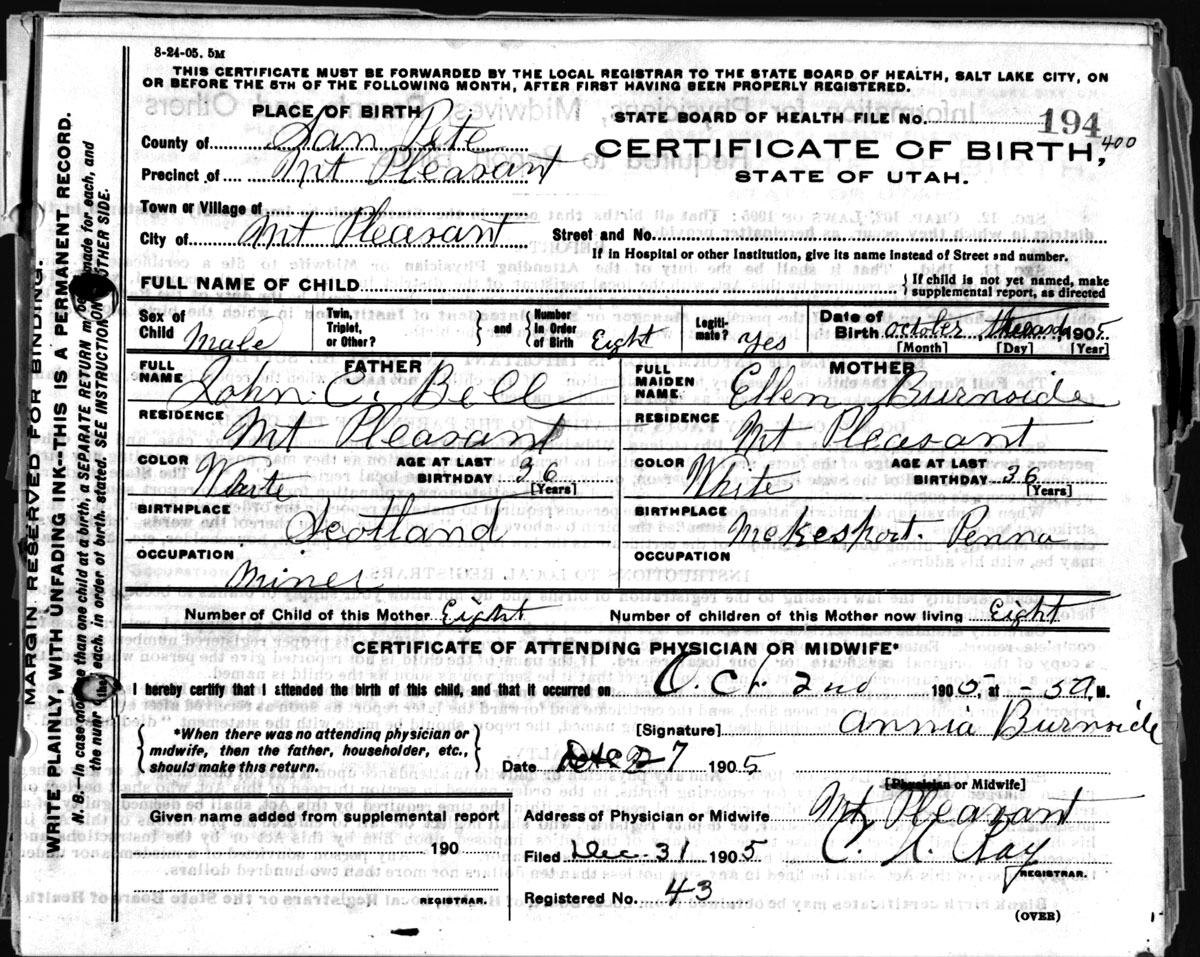 8-24-05. 5M
THIS CERTIFICATE MUST BE FORWARDED BY THE LOCAL REGISTRAR TO THE STATE BOARD OF HEALTH, SALT LAKE CITY, ON
OR BEFORE THE 5TH OF THE FOLLOWING MONTH, AFTER FIRST HAVING BEEN PROPERLY REGISTERED.
PLACE OF BIRTH
County of San Pete
Precinct of Mt Pleasant
Town or Village of
City of Mt Pleasant
STATE BOARD OF HEALTH FILE No. 194
400
CERTIFICATE OF BIRTH,
STATE OF UTAH.
Street and No.
If in Hospital or other Institution, give its name instead of Street and number.
FULL NAME OF CHILD
If child is not yet named, make
supplemental report, as directed
Sex of Child Male
Twin, Triplet, or Other?
and
Number In Order of Birth Eight
Legiti-mate? yes
Date of Birth October 1905
[Month] [Day] [Year]
FATHER
FULL NAME John C. Bell
RESIDENCE Mt Pleasant
COLOR White
AGE AT LAST BIRTHDAY 36
[Years]
BIRTHPLACE Scotland
OCCUPATION Miner
MOTHER
FULL MAIDEN NAME Ellen Burnside
RESIDENCE Mt Pleasant
COLOR White
AGE AT LAST BIRTHDAY 36
[Years]
BIRTHPLACE McKesport. Penna
OCCUPATION
Number of Child of this Mother Eight
Number of children of this Mother now living Eight
CERTIFICATE OF ATTENDING PHYSICIAN OR MIDWIFE*
I hereby certify that I attended the birth of this child, and that it occurred on Oct. 2nd 1905 at -5 a. M.
*When there was no attending physician or
midwife, then the father, householder, etc.,
should make this return.
[Signature] Annia Burnside
Date 27 1905
[Physician or Midwife]
Given name added from supplemental report
190
REGISTRAR.
Address of Physician or Midwife Mt, Pleasant
Filed Dec-31 1905
REGISTRAR.
Registered No. 43
(OVER)
MARGIN RESERVED FOR BINDING.
WRITE PLAINLY, WITH UNFADING INK--THIS IS A PERMANENT RECORD.
N. B.--In case of more than one child at a birth, a SEPARATE RETURN must be made for each, and
the number of each, in order of birth stated. SEE INSTRUCTIONS ON OTHER SIDE.